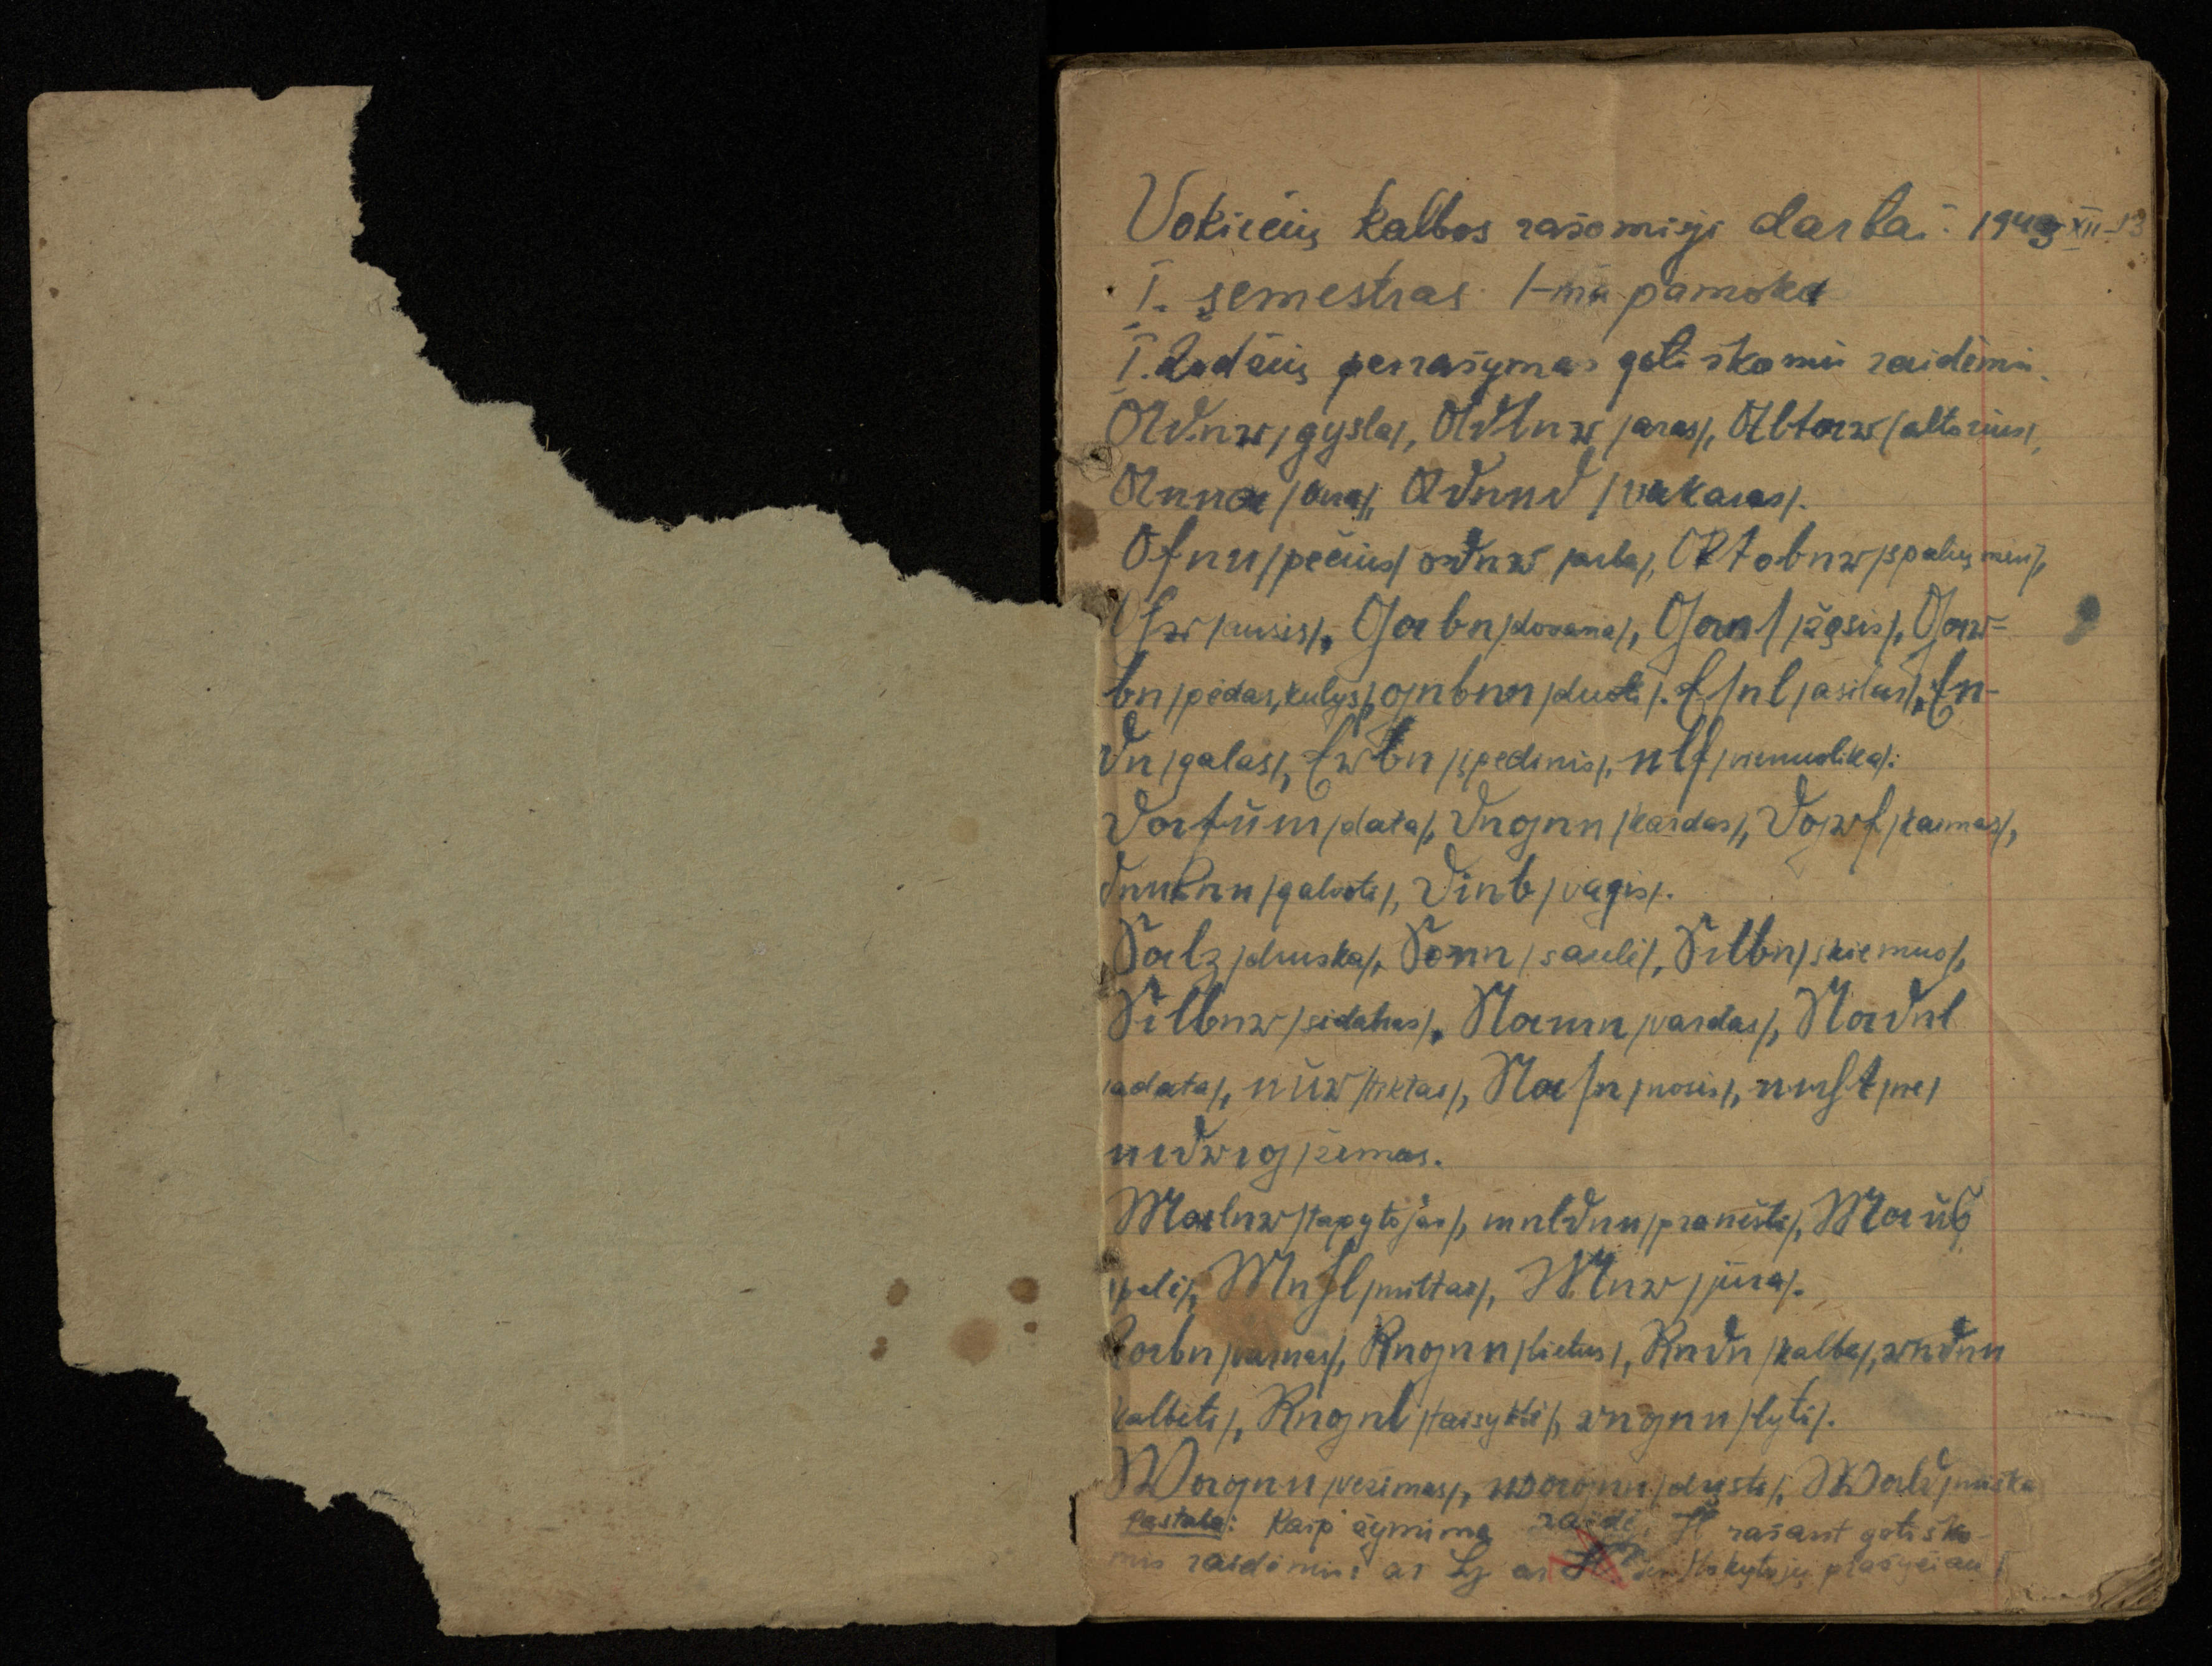 Vokiečių kalbos rašomieji darbai. 1943-XII-13
I. semestras 1-ma pamoka
I. Žodžių perrašymas gotiškomis raidėmis.
Ader /gysla/, Adler /aras/, Altar /altorius/,
Anna /Ona/, Abend /vakaras/.
Ofen /pečius/ oder /arba/, Oktober /spalių mėn/,
Ohr /ausis/, Gabe /dovana/, Gans /žąsis/, Gar-
be /pėdas, kulys/, geben /duoti/. Esel /asilas/, En-
de /galas/, Erbe /įpėdinis/, elf /vienuolika/.
Datum /data/, Degen /kardas/, Dorf /kaimas/,
denken /galvoti/, Dieb /vagis/.
Salz /druska/, Sonne /saulė/, Silbe /skiemuo/,
Silber /sidabras/, Name /vardas/, Nadel
/adata/, nur /tiktai/, Nase /nosis/, nicht /ne/
niedrig /žemas.
Maler /tapytojas/, melden /pranešti/, Maus
/pelė/, Mehl /miltai/, Meer /jūra/.
Rabe /varnas/, Regen /lietus/, Rede /kalba/, reden
kalbėti/, Regel /taisyklė/, regnen /lyti/.
Wagen /vežimas/, wagen /drįsti/, Wald /miška
Pastaba: Kaip žymima raidė H rašant gotiško-
mis raidėmis ar ar prašyčiau